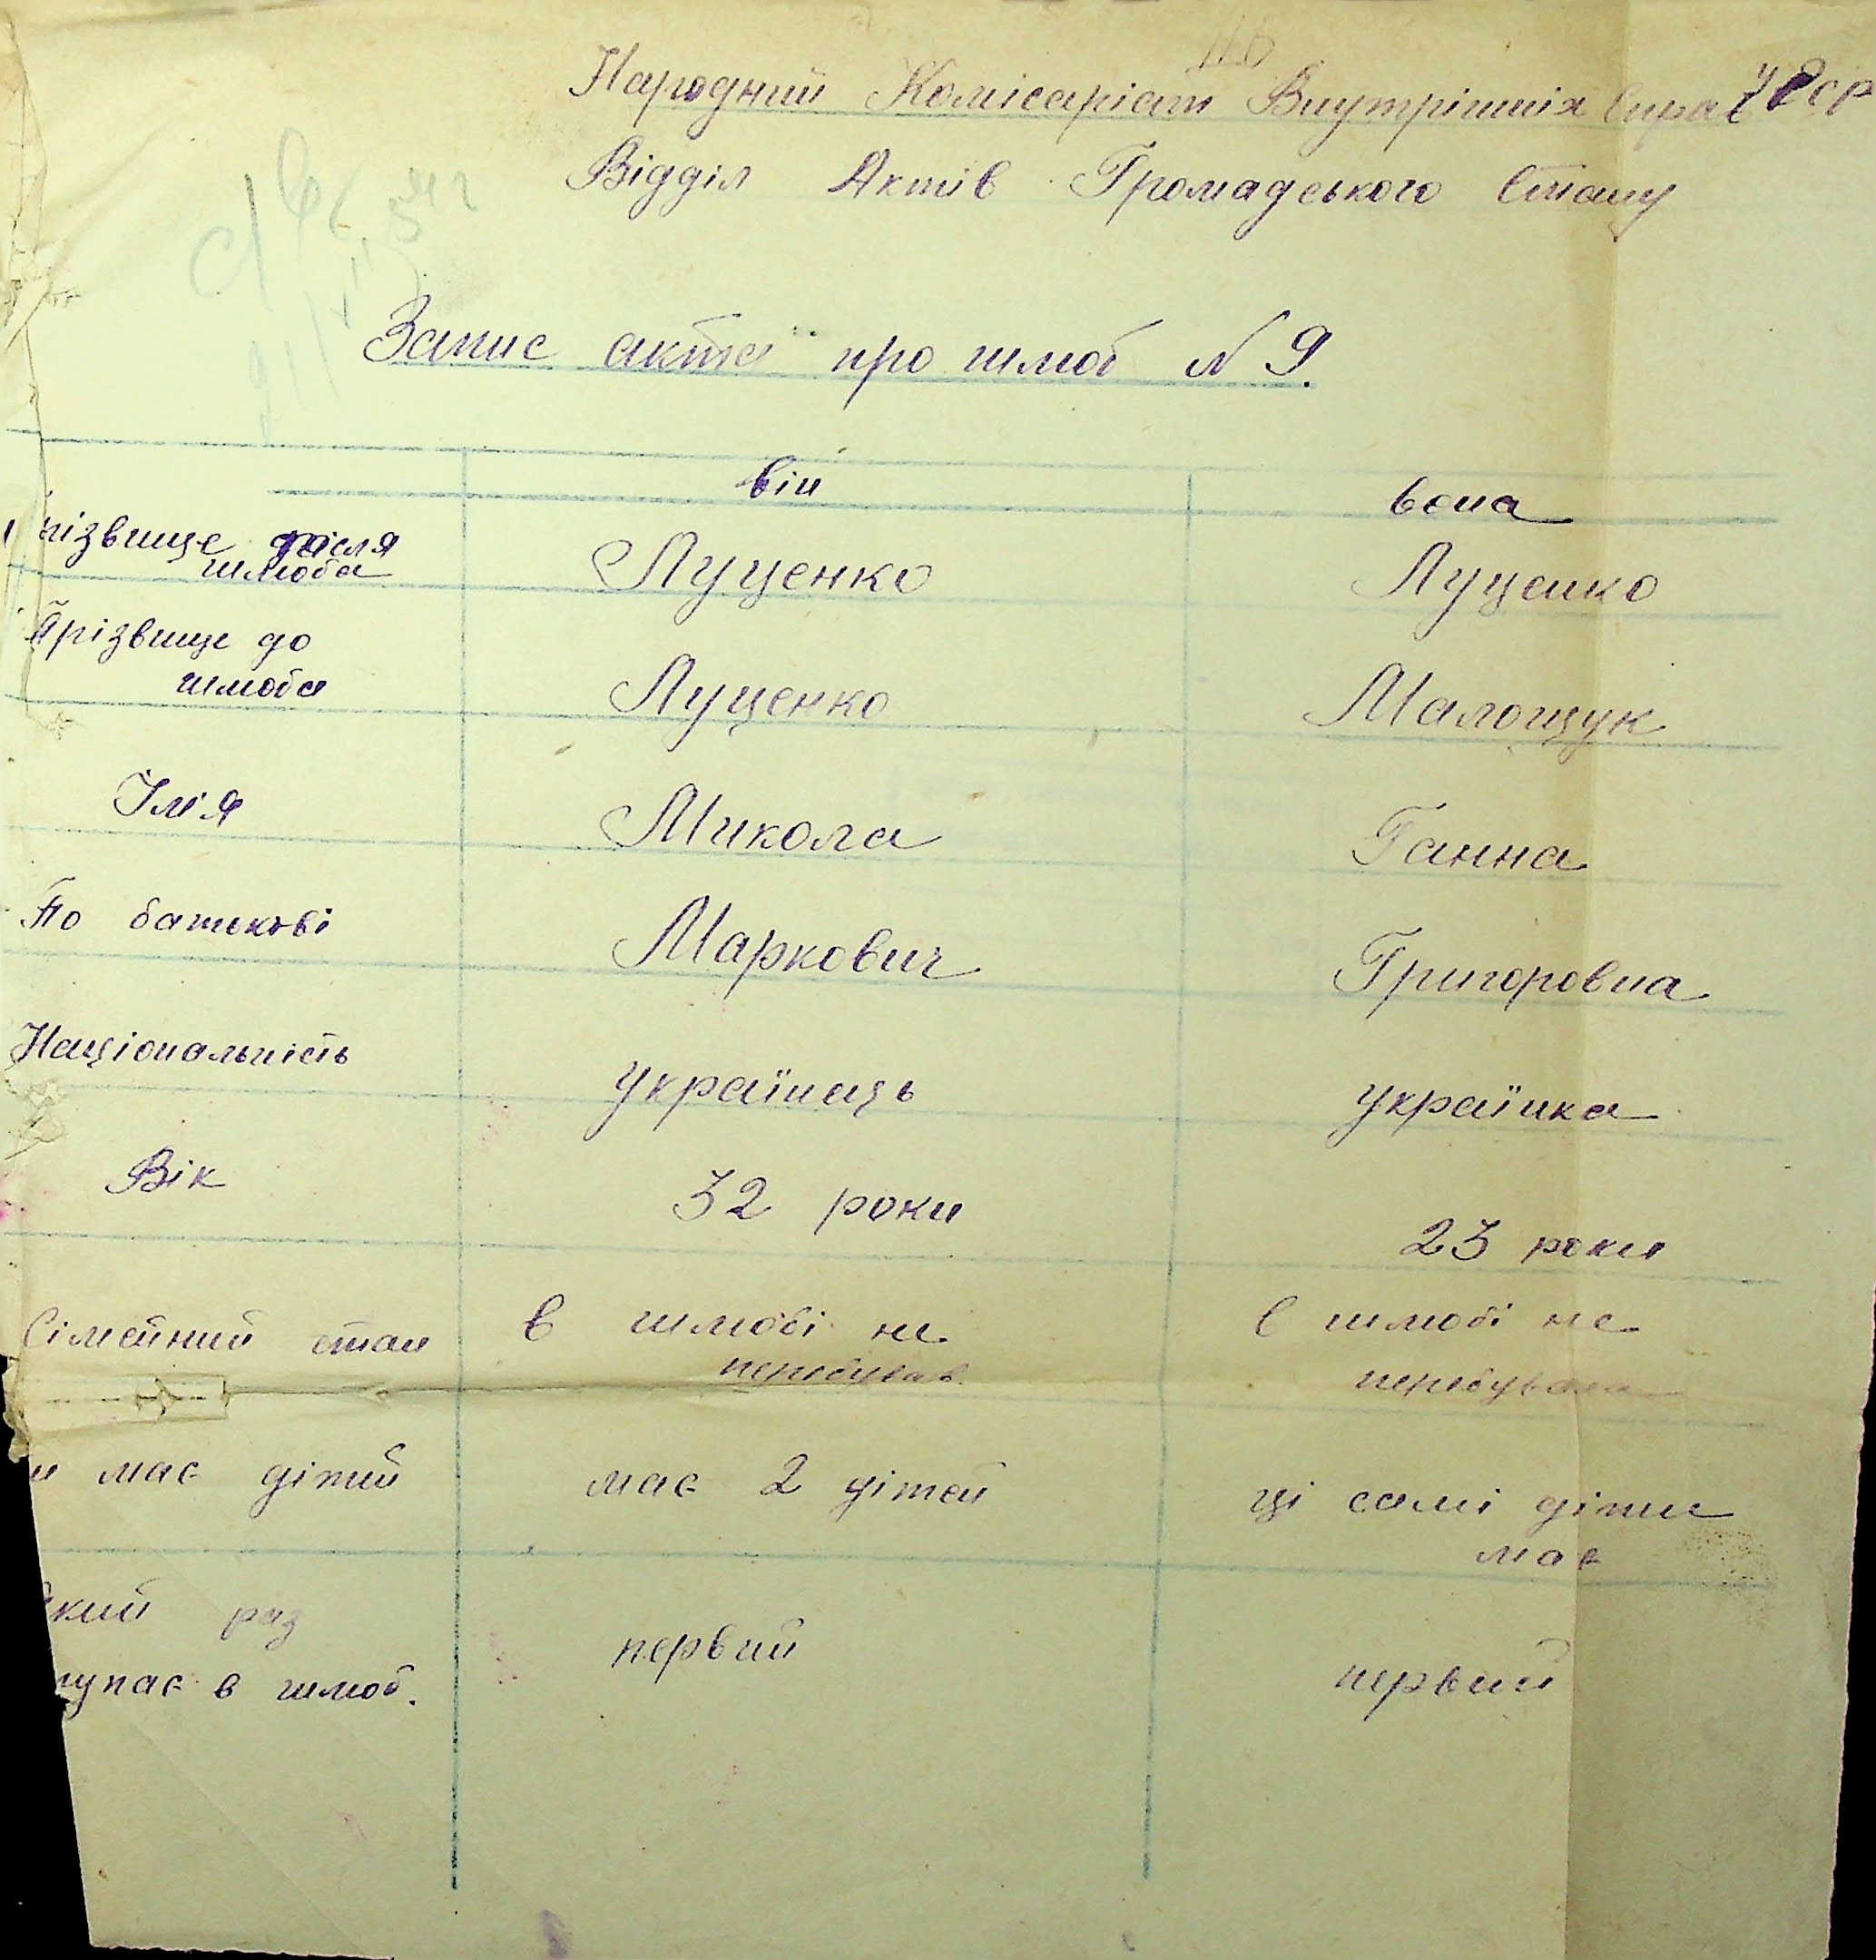 Народний Комісаріат Внутрішніх Справ УРСР
Відділ Актів Громадського Стану
Запис акта про шлюб N 9.
він вона
різвище після
шлюба
Луценко Луценко
Прізвище до
шлюба
Луценко Малощук
Імія Микола Ганна
По батькові Маркович Григоровна
Національність Українець Українка
Вік 32 роки 23 роки
Сімейний стан в шлюбі не в шлюбі не
перебував перебувала
и має дітий має 2 дітей ці самі діти
має
який раз
тупає в шлюб.
первий первий